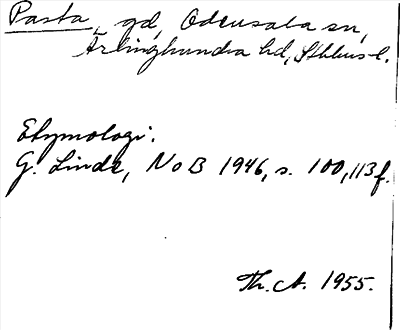 Pasta, gd, Odensala sn,
Ärlinghundra hd, Sthlms l.
Etymologi:
G. Linde, NoB 1946, s. 100, 113 f.
Th. A. 1955.